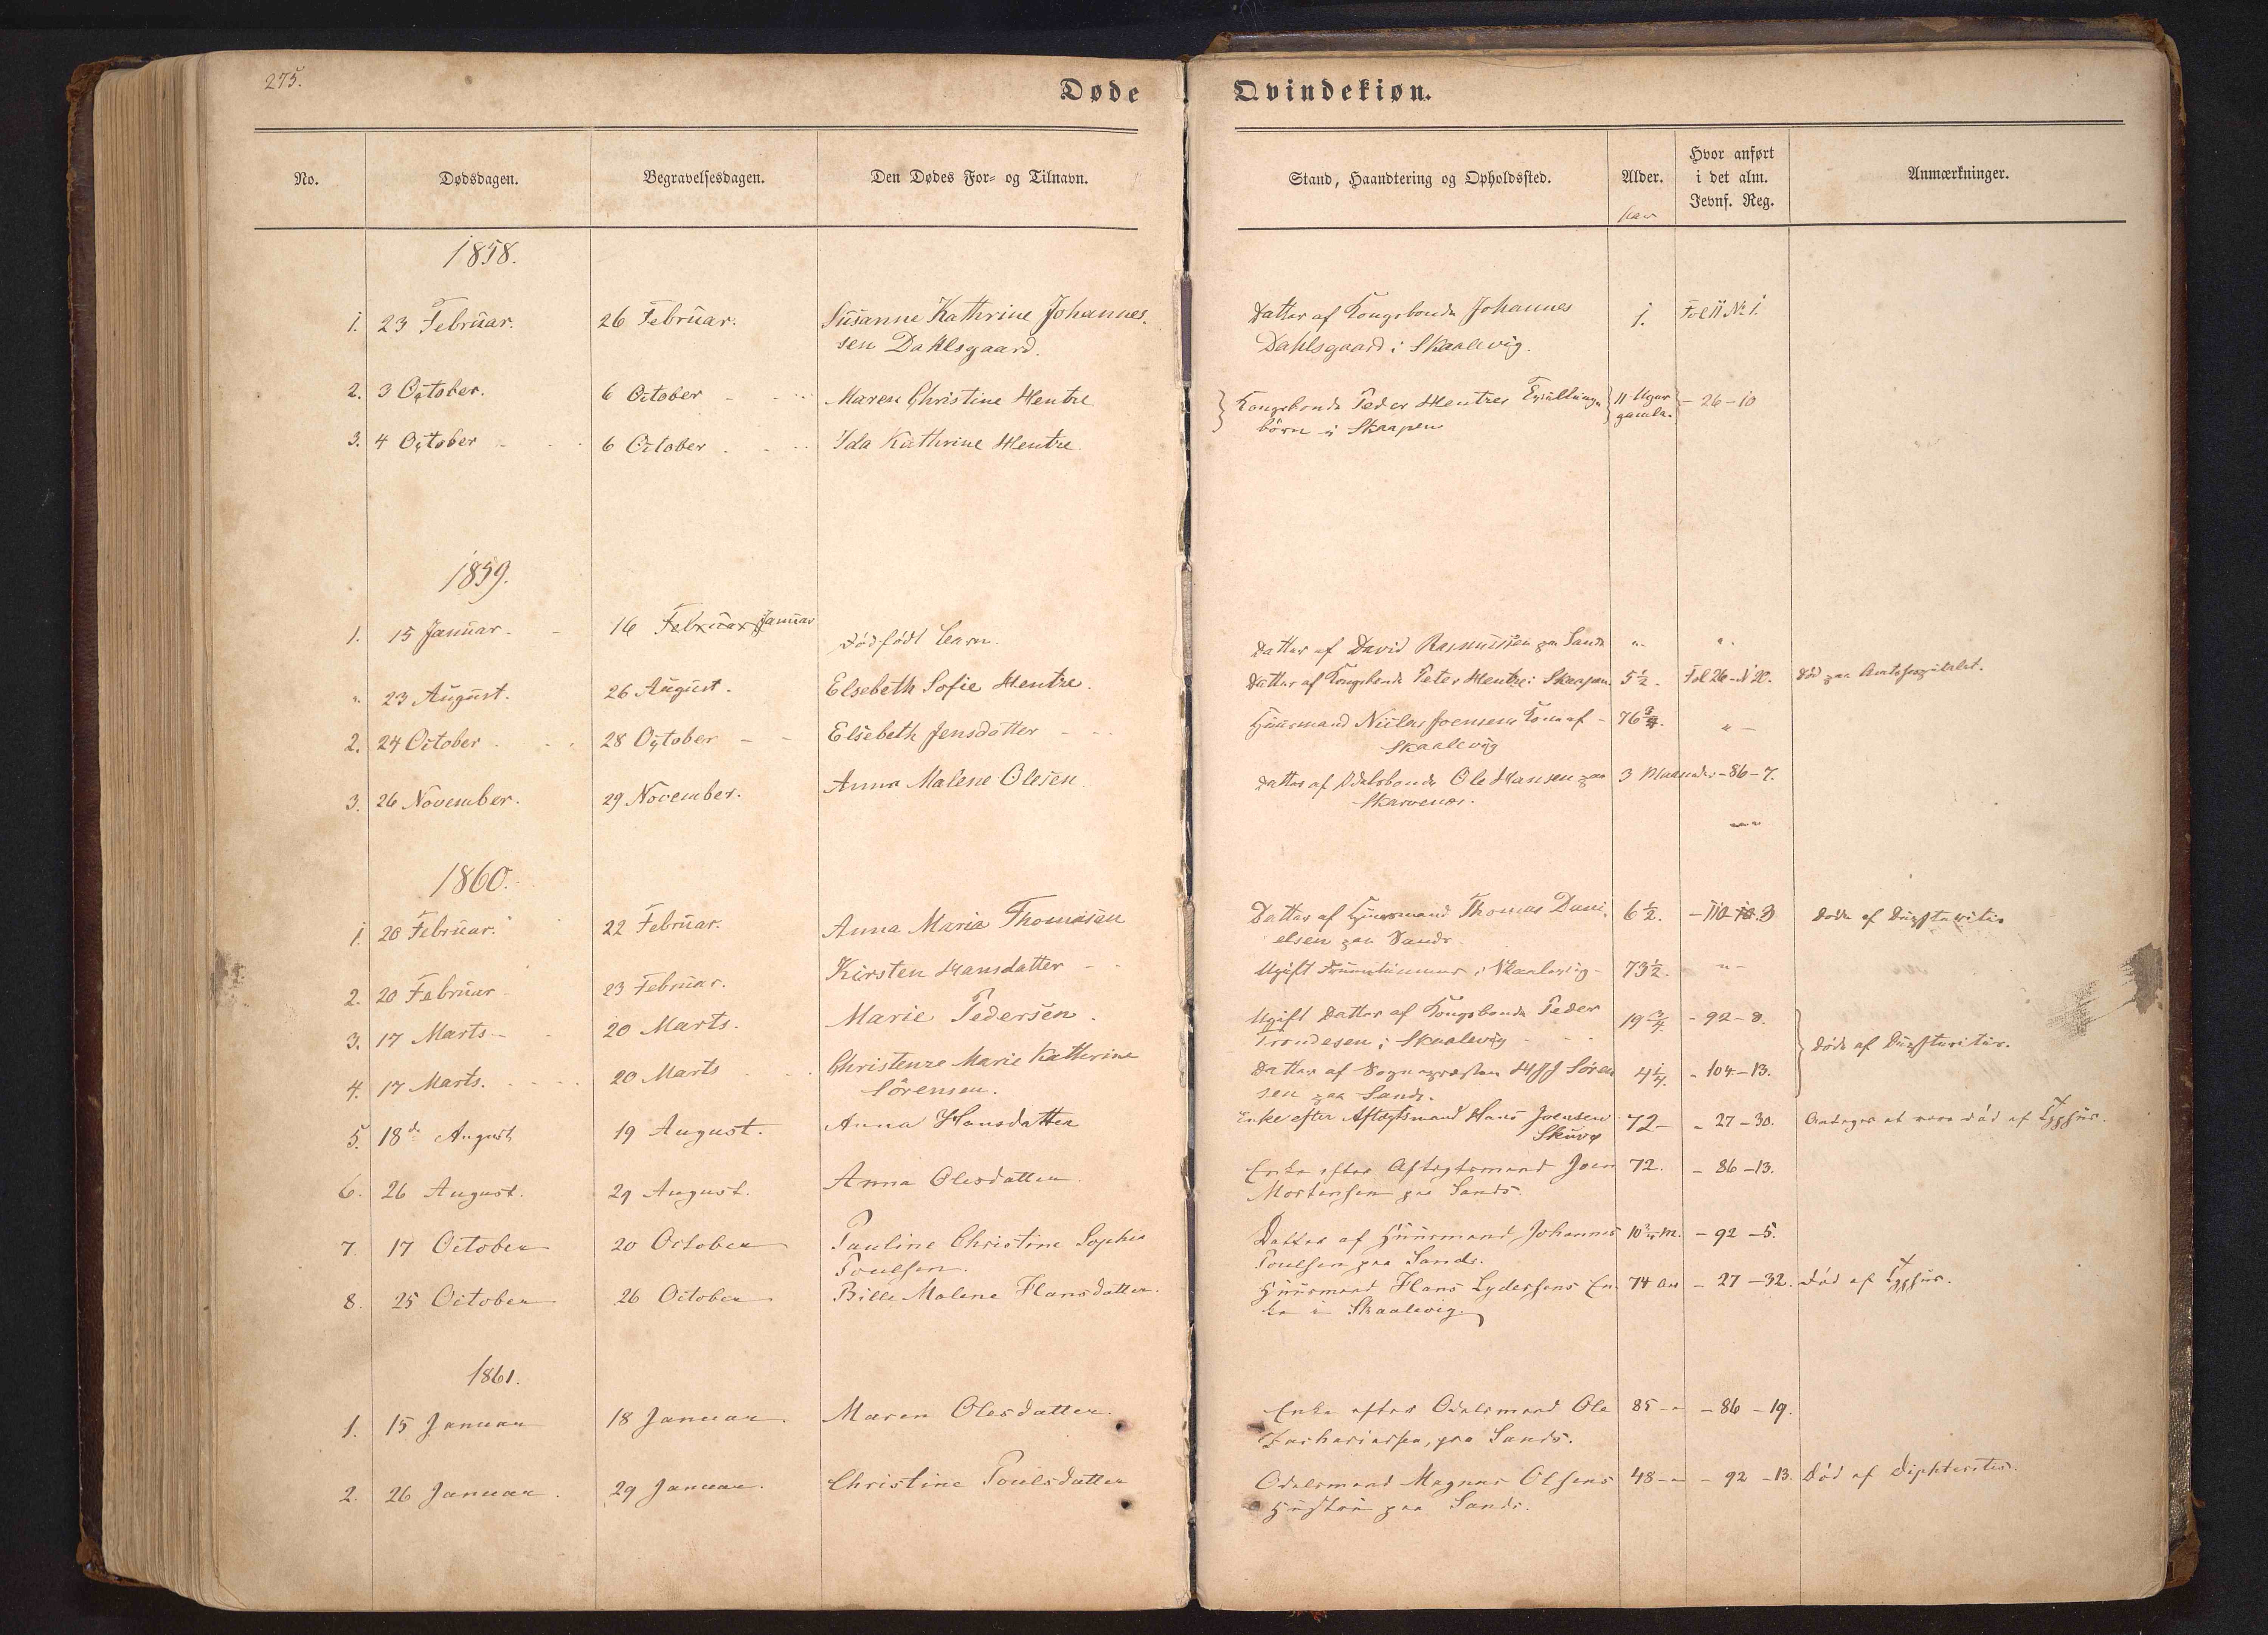 275.
Døde Qvindekiøn.
No. Dødsdagen. Begravelsesdagen. Den Dødes For- og Tilnavn. Stand, Haandtering og Opholdssted. Alder. Hvor anført i det alm. Jevnf. Reg. Anmærkninger.
1858.
1. 23 Februar. 26 Februar. Susanne Kathrine Johannes- Datter af Kongsbonde Johannes 1. Fol 11 No 1.
sen Dahlsgaard. Dahlsgaard i Skaalevig.
2. 3 October. 6 October Maren Christine Hentze Kongsbonde Peder Hentzes Tvillinge 11 Uger - 26 - 10
børn i Skaapen gamle.
3. 4 October 6 October Ida Kathrine Hentze.
1859.
1. 15 Januar. 16 Februar Januar Dødfødt barn. Datter af David Rasmussen paa Sand " "
" 23 August. 26 August. Elsebeth Sofie Hentze. Datter af Kongsbonde Peter Hentze i Skaapen 5½ Fol 26 - N 20. Død paa Amtshospitalet.
2. 24 October 28 October Elsebeth Jensdatter Huusmand Niclas Joensens Kone af 76¾. "
Skaalevig
3. 26 November. 29 November. Anna Malene Olesen. Datter af Odelsbonde Ole Hansen paa 3 Maaneder - 86 - 7.
Skarvenæs.
1860.
1. 20 Februar. 22 Februar. Anna Maria Thomasen Datter af Huusmand Thomas Dani- 6½. - 110 - 10. 3 Døde af Diphteritis
elsen paa Sande.
2. 20 Februar 23 Februar. Kirsten Hansdatter Ugift Fruentimmer i Skaalevig 73½. "
3. 17 Marts 20 Marts. Marie Pedersen. Ugift Datter af Kongsbonde Peder 19¾ - 92 - 8.
Trondesen i Skaalevig Døde af Diphteritis.
4. 17 Marts. 20 Marts Christenze Marie Kathrine Datter af Sognepræsten HJJ Søren 4¼. - 104 - 13.
Sørensen. sen paa Sande.
5. 18de August 19 August. Anna Hansdatter Enke efter Aftægtsmand Hans Joensen 72 - - 27 - 30. Antages at være død af Typhus.
Skuvø
6. 26 August. 29 August. Anna Olesdatter Enke efter Aftægtsmand Joen 72. - 86 - 13.
Mortensen paa Sande.
7. 17 October 20 October Pauline Christine Sophie Datter af Huusmand Johannes - 92 - 5.
Poulsen. Poulsen paa Sande.
8. 25 October 26 October Bille Malene Hansdatter. Huusmand Hans Lydersens En- 74 Aar - 27 - 32. Død af Typhus.
ke i Skaalevig.
1861.
1. 15 Januar 18 Januar. Maren Olesdatter. Enke efter Odelsmand Ole 85 - " - 86 - 19.
Zachariasen, paa Sande.
2. 26 Januar. 29 Januar. Christine Poulsdatter Odelsmand Magnus Olsens 48 - " - 92 - 13. Død af Diphteritis.
Hustru paa Sande.